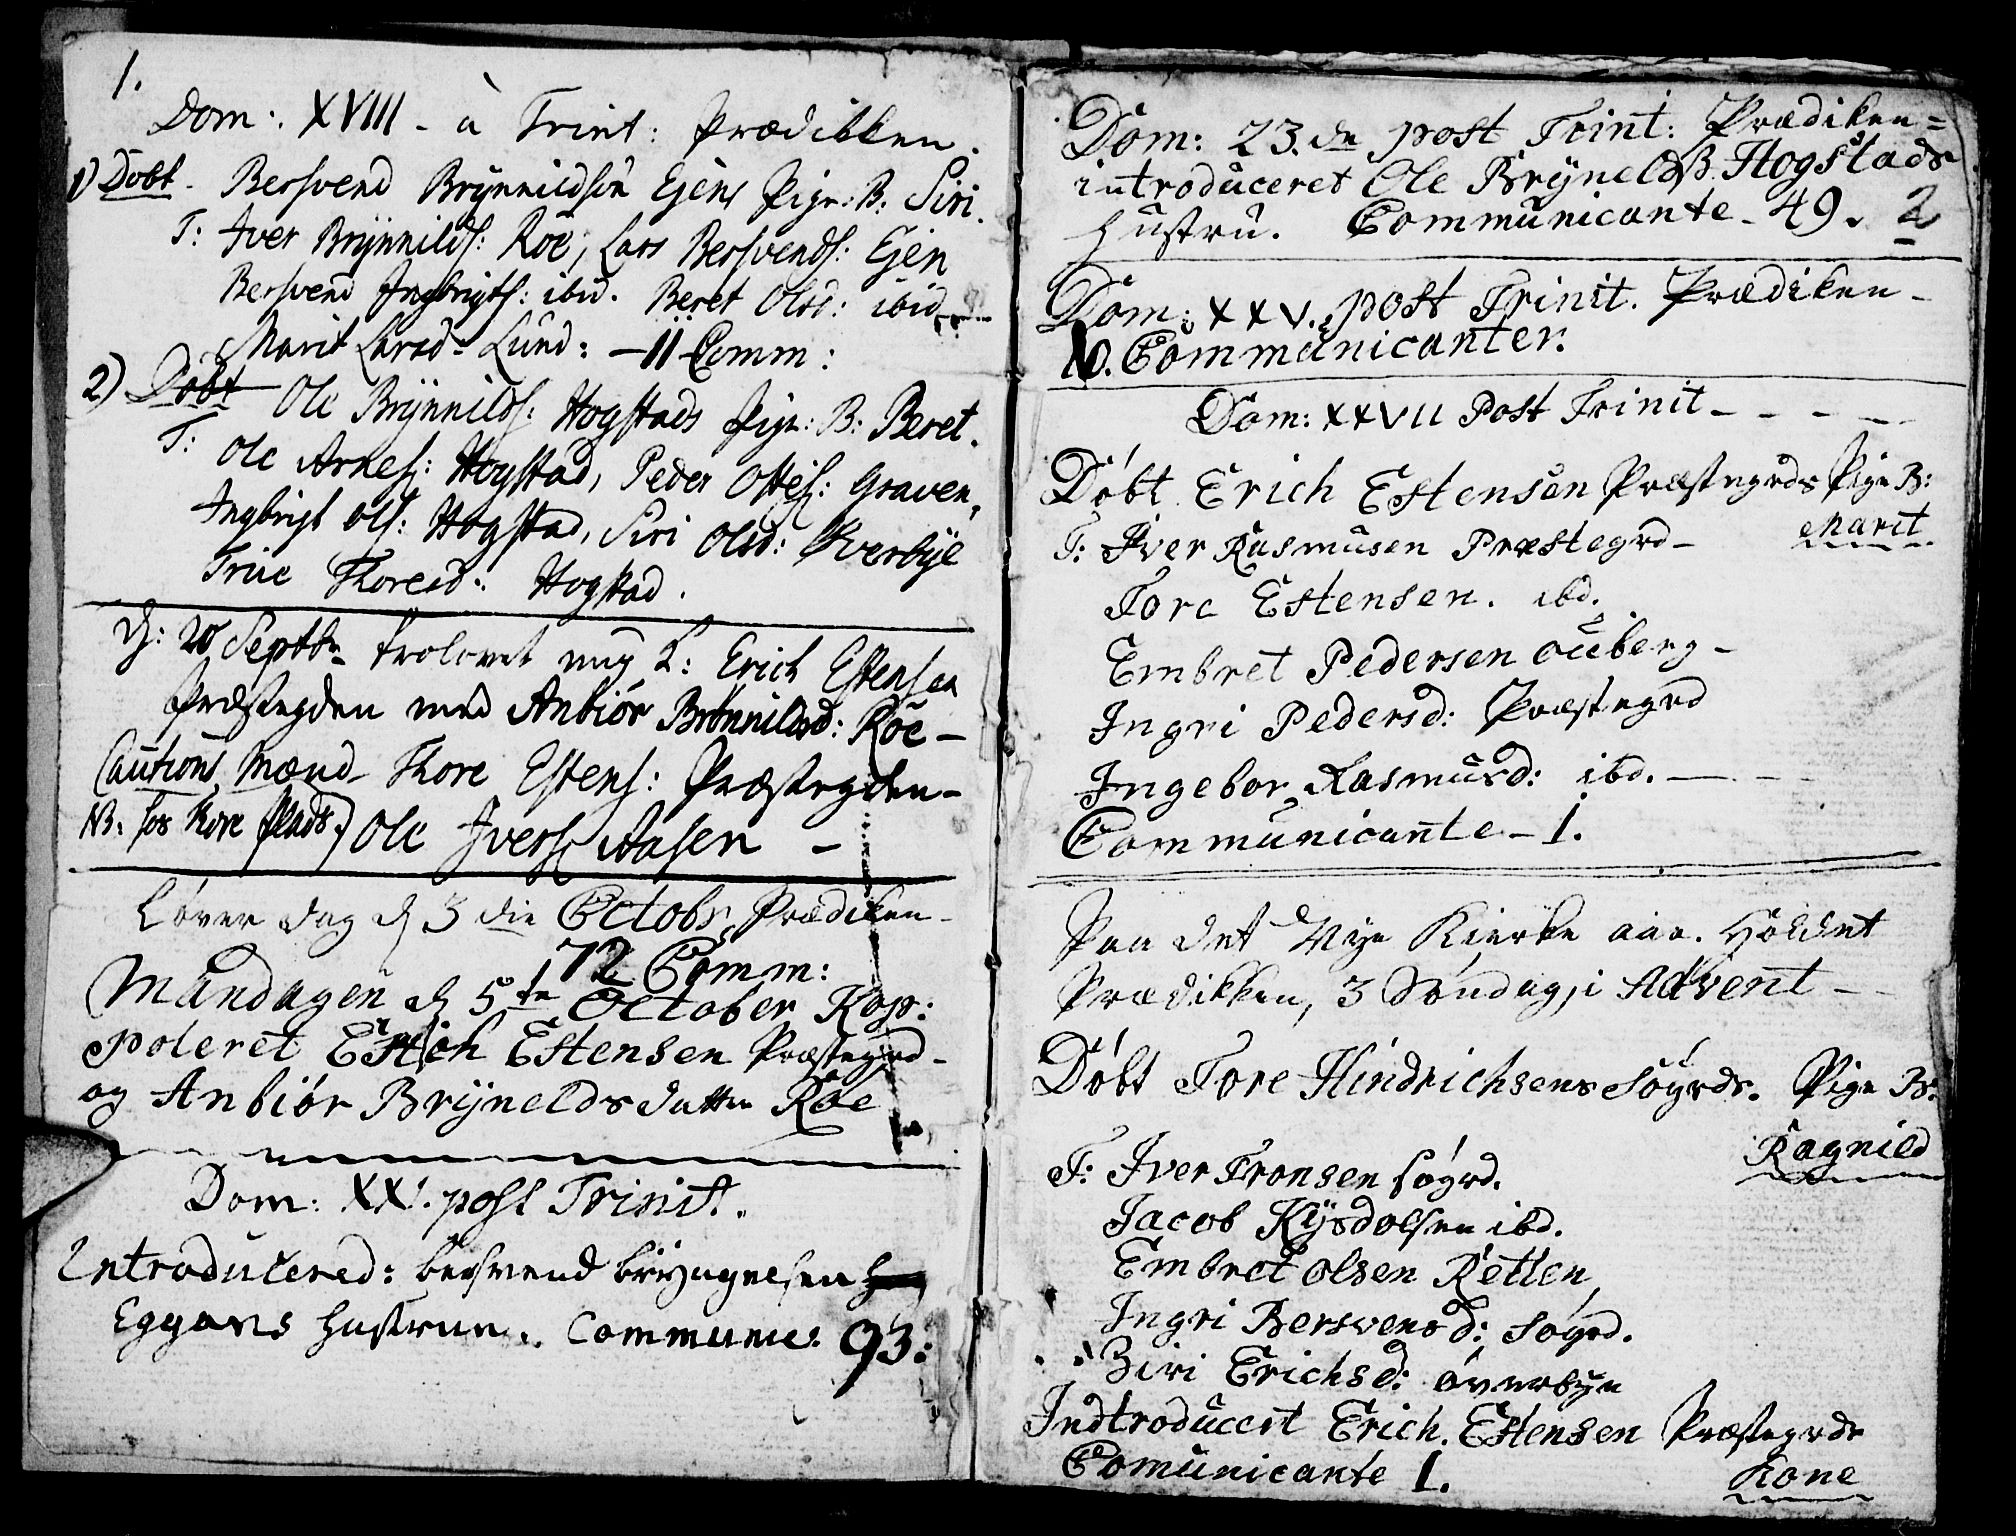 1.
Dom: XVIII - à Trint: Prædikken.
1) Døbt - Bersvend Brynnildsön Ejens Pige: B: Siri.
T: Iver Brynnilds: Roe, Lars Bersvends: Ejen
Bersvend Ingbrigts: ibid. Beret Olsd: ibid
Marit Larsd - Lund: - 11 Comm:
2) Døbt Ole Brynnilds: Hogstads Pige: B: Beret.
T: Ole Arnes: Hogstad, Peder Ottes: Graven,
Ingbrigt Ols: Hogstad, Siri Olsd: Øverbye
Trüe Thoresd: Hogstad.
D: 20 Septbr trolovet ung K: Erich Estensen
Præstegden med Anbiör Brönnildsd: Roe -
Cautions Mænd - Thore Estens: Præstegden -
NB: for Thore Plads.) Ole Ivers: Aasen -
Löver dag d 3 die Octobr, Prædiken -
72 Comm:
Mandagen d 5te October Kop:
poleret Erich Estensen Præstegrd -
og Anbiör Brynelds datter Roe
Dom: XX. post Trinit.
Introducered: bersvend brÿngnelsen
Eggens Hustrue. Communic: 93:
Dom: 23.de post Trint: Prædiken =
introduceret Ole Bryneldß. Hogstads
hustrü. Communicante - 49. 2
Dom: XXV. post Trinit. Prædiken -
10. Communicanter.
Dom: XXVII Post Trinit - - - -
Døbt Erich Estensen Præstegrds Pige B:
Marit
T: Iver Rasmusen Præstegrd -
Tore Estensen. ibd.
Embret Pedersen ouberg -
Ingri Pedersd: Præstegrd
Ingebor Rasmusd: ibd. -
Communicante - 1.
Paa det Nye Kierke aar. Holdet
Prædikken, 3 Söndag i Advent -
Døbt Tore Hindrichsens Sögrds. Pige B.
Ragnild
T: Iver Tronsen sögrd.
Jacob Kysdolsen ibd.
Embret Olsen Retten,
Ingri Bersvensd: Sögrd.
Ziri Erichsd: överbye
Indtroducert Erich. Estensen Præstegrds
Kone
Comunicante 1.